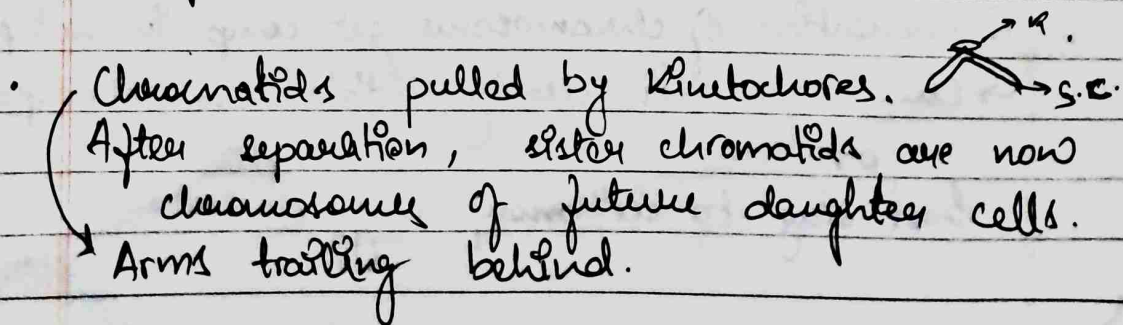 K.
• Chromatids pulled by Kinetochores. → S.C.
After separation, sister chromatids are now
chromosomes of future daughter cells.
Arms trailing behind.